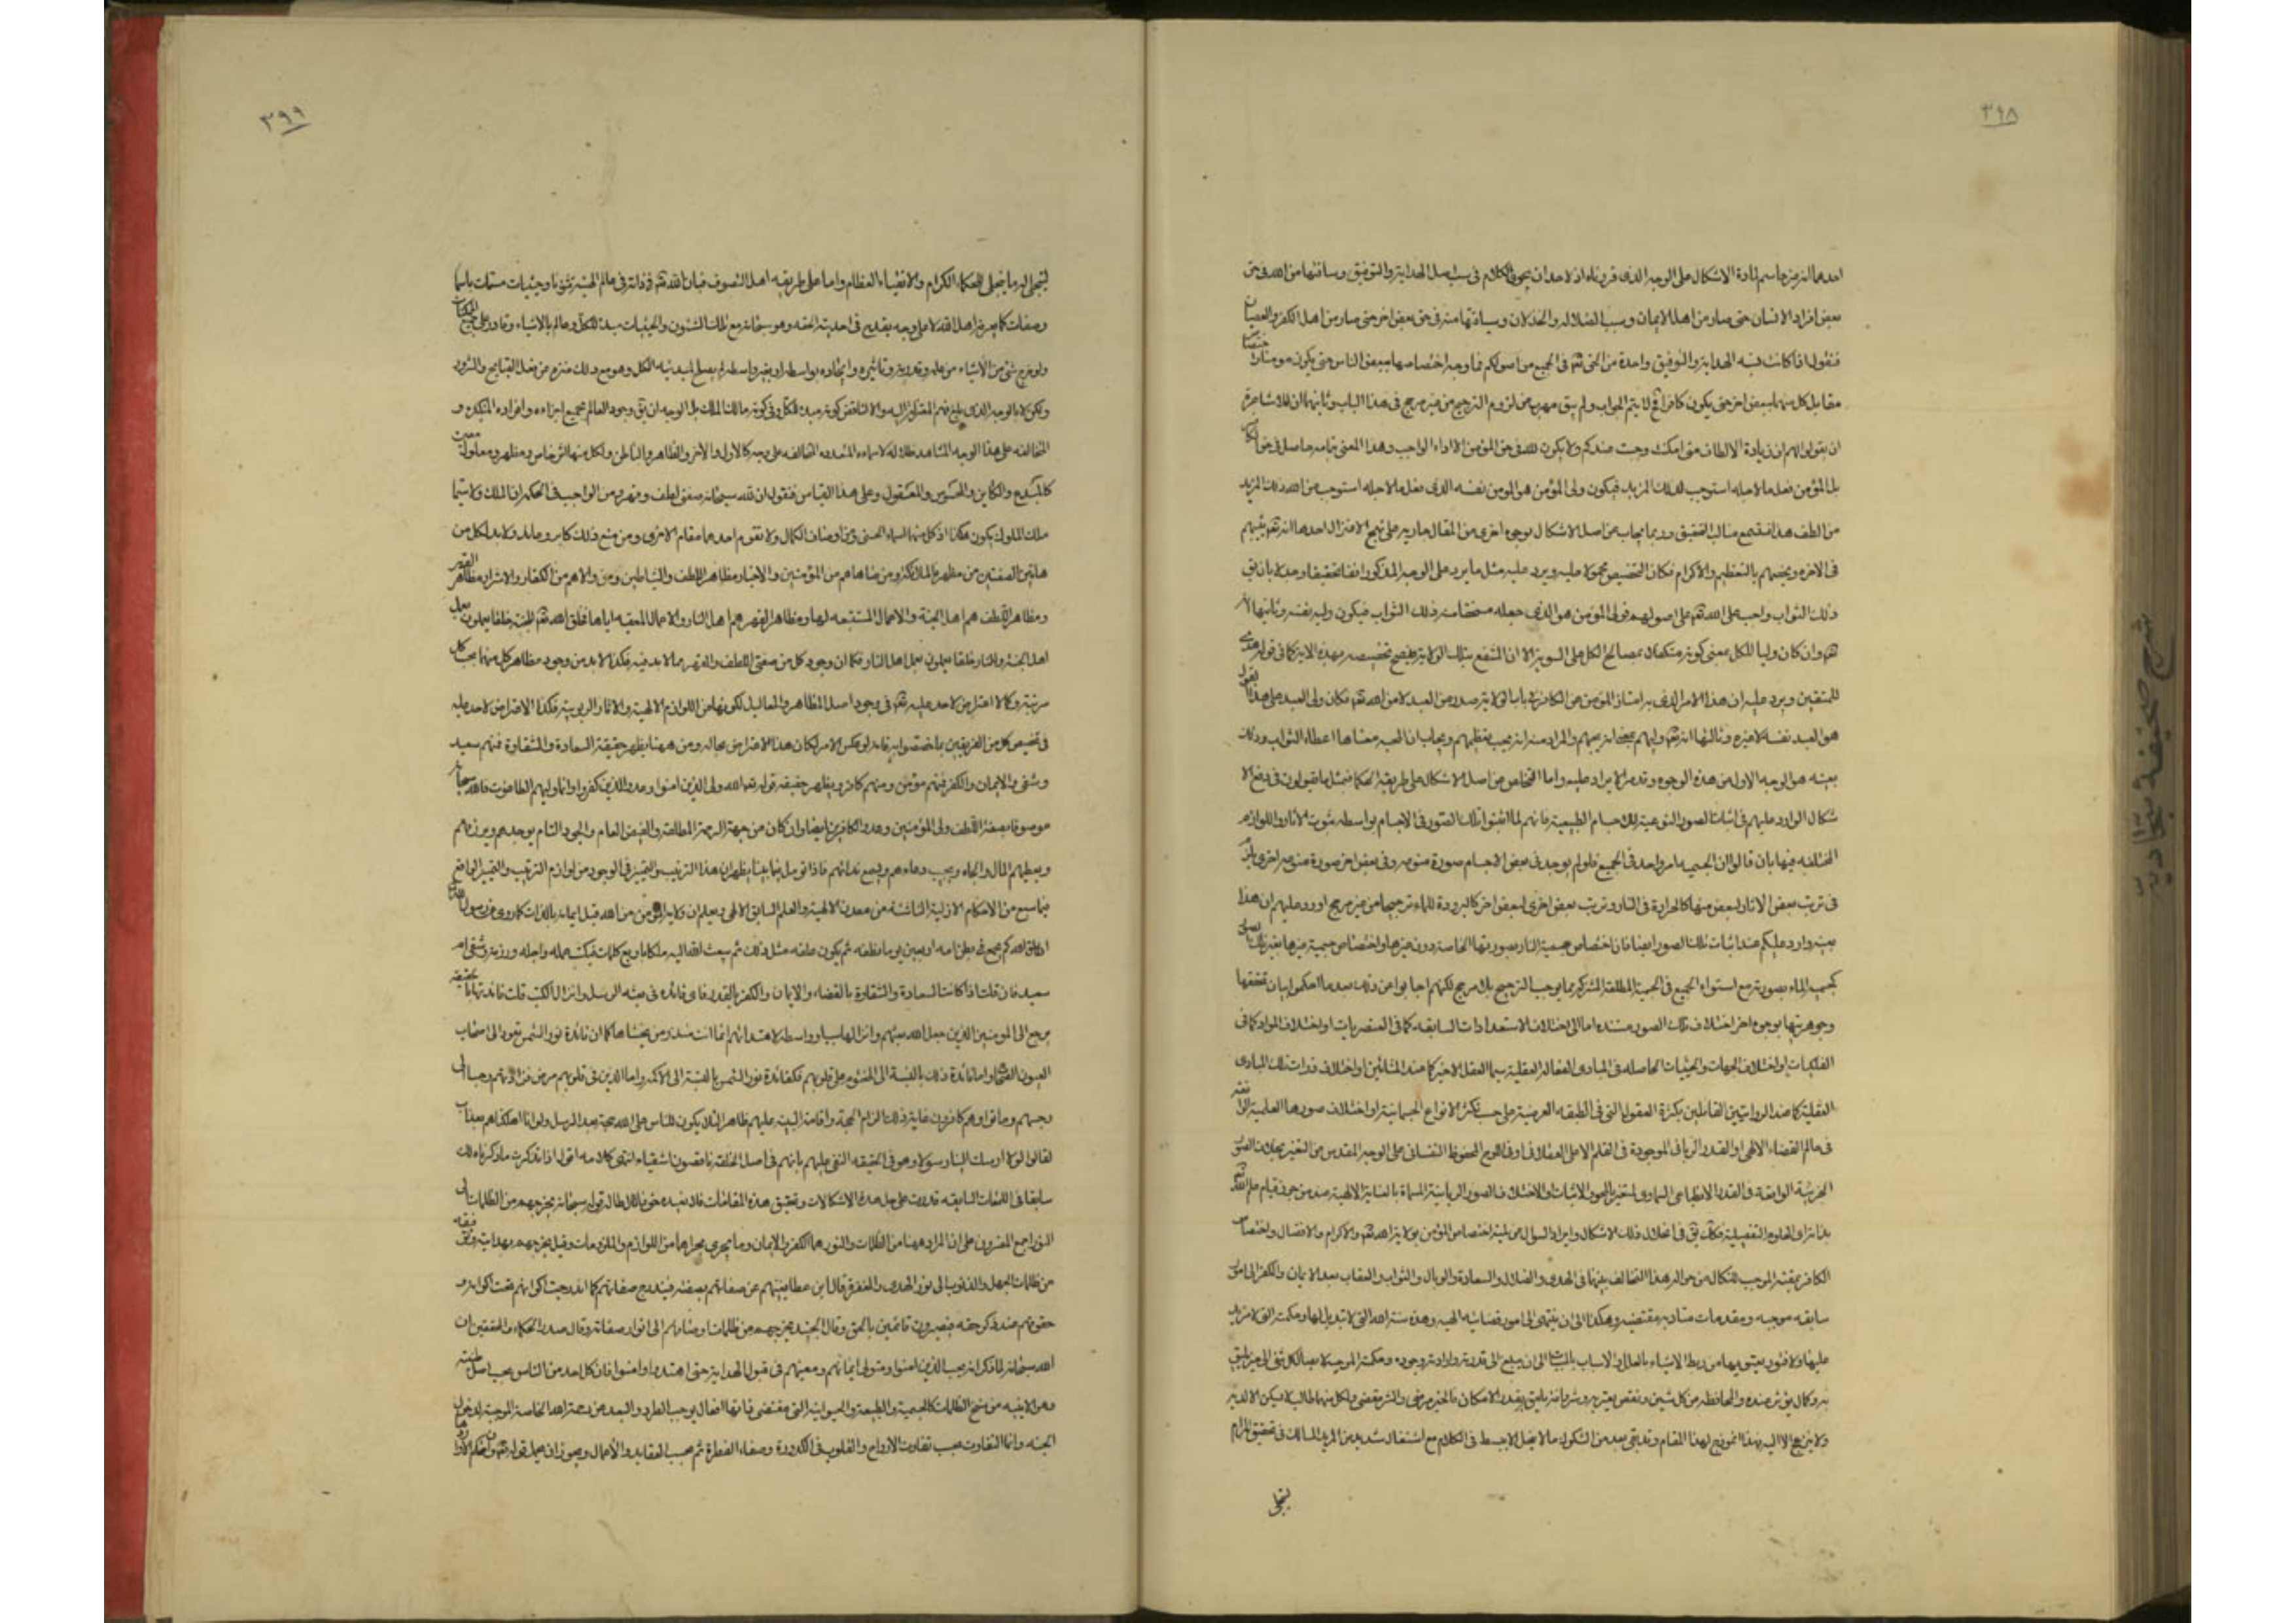 ٣٩٨
احدهما انه غير حاسم لمادة الاشكال على الوجه الذى قررناه اذ لاحد ان يجرى الكلام فى سبب اصل الهداية والتوفيق وسابقتها من الله فى حق
بعض افراد الانسان حتى صار من اهل الايمان وسبب الضلالة والخذلان وسابقتها منه فى حق بعض اخر حتى صار من اهل الكفر والعصيان
فنقول اذا كانت نسبة الهداية والتوفيق واحدة من الحق تعالى فى الجميع من اصولكم فما وجه اختصاصها ببعض الناس حتى يكون مومنا
مقابل كل منهما ببعض اخر حتى يكون كافرا لا يتم الجواب ولم يبق مهرب عن لزوم الترجيح من غير مرجح فى هذا الباب وثانيهما ان للاشاعرة
ان يقولوا لهم ان زيادة الالطاف متى امكنت وجبت عندكم ولا يكون لله فى حق المؤمن الا اداء الواجب وهذا المعنى بتمامه حاصل فى حق
بل المؤمن فعل ما لاجله استوجب لذلك المزيد فيكون ولى المؤمن هو المومن نفسه الذى فعل ما لاجله استوجب من الله ذلك المزيد
من اللطف هذا وربما يجاب عن اصل الاشكال بوجوه اخرى من المقال جارية على نهج الاعتزال احدها انه تعالى يثيبهم
فى الاخرة ويخصهم بالتعظيم والاكرام فكان التخصيص محمولا عليه ويرد عليه مثل ما يرد على الوجه المذكور انفا تحقيقا وجدلا بان
ذلك الثواب واجب على الله تعالى على اصولهم فولى المؤمن هو الذى جعله مستحقا من ذلك الثواب فيكون وليه نفسه وثانيها
تعالى وان كان وليا للكل بمعنى كونه متكفلا بمصالح الكل على السوية الا ان المنتفع بتلك الولاية فيصح تخصيصه بهذه الاية كما فى قوله هدى
للمتقين ويرد عليه ان هذا الامر الذى به امتاز المؤمن عن الكافر فى باب الولاية صدر من العبد لا من الله تعالى فكان ولى العبد على هذا القول
هو العبد نفسه لا غيره وثالثها انه تعالى وليهم بمعنى انه يحبهم والمراد منه انه يحب تعظيمهم ويجاب ان المحبة معناها اعطاء الثواب وذلك
بعينه هو الوجه الاول من هذه الوجوه وقد مر الايراد عليه واما التخلص عن اصل الاشكال على طريقة الحكما فمثل ما يقولون فى دفع الا
شكال الوارد عليهم فى اثبات الصور النوعية للاجسام الطبيعية فانهم لما اثبتوا تلك الصور فى الاجسام بواسطة ثبوت الاثار واللوازم
المختلفة فيها بان قالوا ان الجسمية امر واحد فى الجميع فلو لم يوجد فى بعض الاجسام صورة منوعه وفى بعض اخر صورة منوعة اخرى يلزم
فى ترتب بعض الاثار لبعض منها كالحرارة فى النار وترتب بعض اخرى لبعض اخر كالبرودة للماء ترجيحا من غير مرجح اورد عليهم ان هذا
بعينه وارد عليكم عند اثبات تلك الصور ايضا فان اختصاص جسمية النار بصورتها الخاصة دون غيرها واختصاص جسمية غيرها بغير تلك
كجسم الماء بصورته مع استواء الجميع فى الجسمية المطلقة المشتركة مما يوجب الترجيح بلا مرجح لكنهم اجابوا عن ذلك بعد ما احكموا بيان تحققها
وجوهريتها بوجوه اخر اختلاف تلك الصور مستنده اما الى اختلاف الاستعدادات السابقة كما فى العنصريات او اختلاف المواد كما فى
الفلكيات او اختلاف الجهات والحيثيات الحاصلة فى المبادى الفعالة العقلية سيما العقل الاخير كما عند المشائين او اختلاف ذوات تلك المبادى
العقلية كما عند الرواقيين القائلين بكثرة العقول التى فى الطبقة العرضية على حسب تكثر الانواع الجسمانية او اختلاف صورها العلمية
فى عالم القضاء الالهى او القدر الربانى الموجودة فى القلم الاعلى العقلانى او فى اللوح المحفوظ النفسانى على الوجه المقدس عن التغير
الجزئية الواقعة فى القدر الانطباعى السماوى المتغير بالمحو والاثبات والاختلاف فى الصور الربانية المسماة بالعناية الالهية عند من جوز قيام علم الله
بذاته اى العلوم التفصيلية فكك فى انحلال ذلك الاشكال وايراد السوال عن لمية اختصاص المؤمن بولاية الله تعالى والاكرام والافضال واختصاص
الكافر بمقته الموجب للنكال من حوالة هذا التخالف بينهما فى الهدى والضلال والسعادة والوبال والثواب والعقاب بعد الايمان والكفر الى امور
سابقه موجبه ومقدمات متادية مقتضية وهكذا الى ان ينتهى الى امور قضائيه الهيه وهذه سنة الله التى لا تبديل لها وحكمته التى لا مزيد
عليها ولا فتور يعتريها من ربط الاشياء بالعلل والاسباب الى ان يبلغ الى قدرته وارادته وجوده وحكمته الموجبة لايصال كل شئ الى خير يليق
به وكمال يؤثر عنده والمحافظة عن كل شين ونقص يعتريه وشر وافة يلحق بقدر الامكان فالخير مرضى والشر مقضى ولكل منهما طالب لا يسكن الا لديه
ولا ينزعج الا اليه فهذا انموذج لهذا المقام وقد بقى بعد من الشكوك ما لا يخل الا ببسط فى الكلام مع اشتغال شديد من المريد السالك فى تحقيق المرام
ليتجلى
شرح صحيفة سجادية
٣٩٩
ليتجلى له ما يتجلى للحكماء الكرام والاتقياء العظام واما على طريقة اهل التصوف فبان لله تعالى فى ذاته فى عالم الهيته شؤنا وحيثيات مسميات باسما
وصفات كما يعرفه اهل الله لا على وجه يقدح فى احديته الحقه وهو سبحانه مع تلك الشئون والحيثيات مبدء للكل وعالم بالاشياء وقادر على جميع الممكنات
ولو خرج شئ من الاشياء من علمه وقدرته وتاثيره وايجاده بواسطة او بغير واسطة لم يصلح لمبدئية الكل وهو مع ذلك منزه عن فعل القبايح والشرور
ولكن لا بالوجه الذى بلغ فهم المعتزلى اليه والا لناقض كونه مبدء للكل وفى كونه مالك الملك بل الوجه ان وجود العالم بجميع اجزاءه وافراده المتكثره و
المتخالفه على هذا الوجه المشاهد لاسماءه المتعدده المتخالفه على وجه كالاول والاخر والظاهر والباطن ولكل منها اثر خاص ومظهر ومعلول
كالمبدع والكاين والمحسوس والمعقول وعلى هذا القياس فنقول ان لله سبحانه صفتى لطف وقهر ومن الواجب فى الحكمه ان الملك ولا سيما
ملك الملوك يكون هكذا اذ كل منهما من اوصاف الكمال ولا تقوم احدهما مقام الاخرى ومن منع ذلك كابر وعاند ولابد لكل من
هاتين الصفتين من مظهر فالملائكة ومن ضاهاهم من المؤمنين والاخيار مظاهر اللطف والشياطين ومن والاهم من الكفار والاشرار مظاهر القهر
ومظاهر اللطف هم اهل الجنة والاعمال المستتبعه لها ومظاهر القهر هم اهل النار والاعمال المعقبه اياها فخلق الله تعالى للجنة خلقا يعملون بعمل
اهل الجنة وللنار خلقا يعملون بعمل اهل النار فكما ان وجود كل من صفتى اللطف والقهر مما لابد فيه فكذا لابد من وجود مظاهر كل منهما بحسب كل
مرتبة وكما لا اعتراض لاحد عليه تعالى فى وجود اصل المظاهر والمعاليل لكونها من اللوازم الالهية والاثار الربوبية فكذا لا اعتراض لاحد عليه
فى تخصيص كل من الفريقين بما اختصوا به فانه لو عكس الامر لكان هذا الاعتراض بحاله ومن ههنا يظهر حقيقة السعادة والشقاوة فمنهم سعيد
وشقى والايمان والكفر فمنهم مؤمن ومنهم كافر ويظهر حقيقة قوله تعالى الله ولى الذين امنوا وعدو الذين كفروا وانما وليهم الطاغوت فالله سبحانه
موصوف بصفة اللطف ولى المؤمنين وعدو الكافرين ايضا وان كان من جهة الرحمة المطلقة والفيض العام والجود التام يوجدهم ويرزقهم
ويعطيهم المال والجاه ويجيب دعاءهم ويسمع ندائهم فاذا تومل فيما بينا يظهر ان هذا الترتيب والتمييز فى الوجود من لوازم الترتيب والتمييز الواقع
فيما سبق من الاحكام الازلية الناشئة من معدن الالهية والعلم السابق الالهى ويعلم ان ولاية المؤمن من الله قبل ايمانه بالذات كما روى عن رسول الله
ان خلق احدكم يجمع فى بطن امه اربعين يوما نطفه ثم يكون علقه مثل ذلك ثم يبعث الله اليه ملكا باربع كلمات فيكتب عمله واجله ورزقه وشقى ام
سعيد فان قلت اذا كانت السعادة والشقاوة بالقضاء والايمان والكفر بالقدر فاى فائده فى بعثه الرسل وانزال الكتب قلت فائدتها بالحقيقه
يرجع الى المومنين الذين جعل الله بعثهم وانزالها سببا وواسطة لاهتدائهم انما انت منذر من يخشاها كما ان فائدة نور الشمس تعود الى اصحاب
العيون الصحاح واما فائدة ذلك بالنسبة الى المختوم على قلوبهم فكفائدة نور الشمس بالنسبة الى الاكمه واما الذين فى قلوبهم مرض فزادتهم رجسا الى
رجسهم وماتوا وهم كافرون غاية ذلك الزام الحجة واقامة البينة عليهم ظاهرا لئلا يكون للناس على الله حجة بعد الرسل ولو انا اهلكناهم بعذاب
لقالوا لولا ارسلت الينا رسولا وهو فى الحقيقه النعى عليهم بانهم فى اصل الخلقة ناقصون اشقياء انتهى كلامه اقول اذا تذكرت ما ذكرناه لك
سابقا فى اللمعات السابقه قدرت على حل هذه الاشكالات وتحقيق هذه المقامات فلا نعيده خوفا للاطالة قوله سبحانه يخرجهم من الظلمات الى
النور اجمع المفسرون على ان المراد ههنا من الظلمات والنور هما الكفر والايمان وما يجرى مجراهما من اللوازم والملزومات وقيل يخرجهم بهدايته وتوفيقه
من ظلمات الجهل والذنوب الى نور الهدى والمغفرة وقال ابن عطا يغنيهم عن صفاتهم بصفته فيندرج صفاتهم كما اندرجت اكوانهم تحت اكوانه و
حقوقهم عند ذكر حقه فيصيرون قائمين بالحق وقال الجنيد يخرجهم من ظلمات اوصافهم الى انوار صفاته وقال صدر الحكماء والمحققين ان
الله سبحانه لما ذكر انه يحب الذين امنوا ومتولى ايمانهم ومعينهم فى قبول الهداية حتى اهتدوا وامنوا فان كل احد من الناس بحسب اصل
وهو لابقية من سنخ الظلمات الجسمية والطبيعة والحيوانية التى مقتضى ذاتها افعال يوجب الطرد والبعد عن رحمة الله الخاصة الموجبة لدخول
الجنه وانما التفاوت بحسب تفاوت الارواح والقلوب فى الكدورة وصفاء الفطرة ثم بحسب العقايد والاعمال